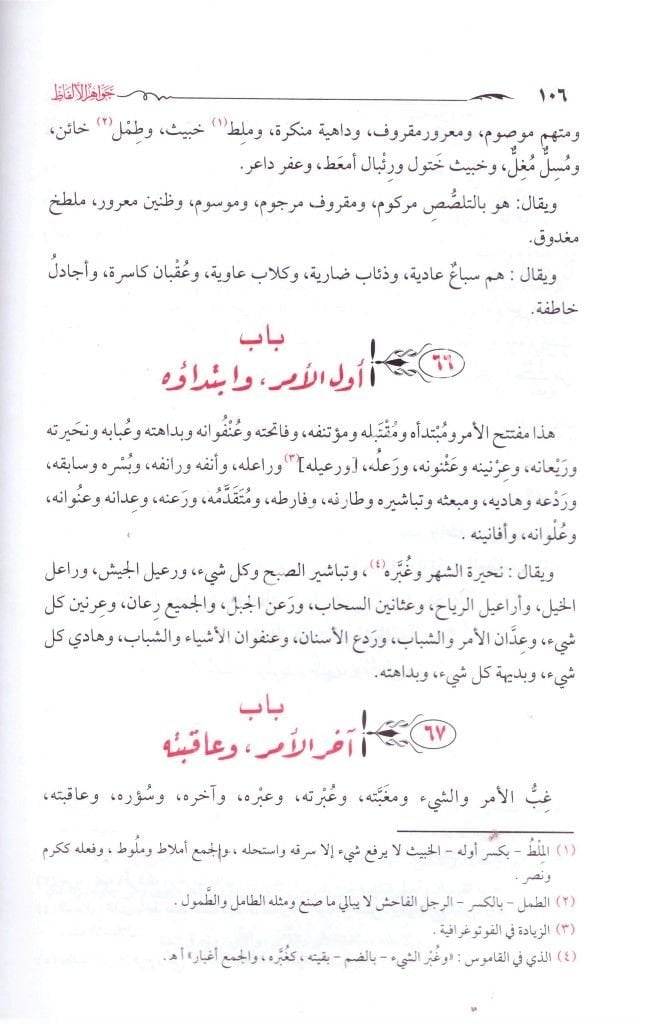 ١٠٦ جواهر الألفاظ
ومتهم موصوم، ومعرورمقروف، وداهية منكرة، وملِط(١) خبيث، وطِمْل(٢) خائن،
ومُسِلٌّ مُغِلٌّ، وخبيث خَتول ورِئْبال أمعَط، وعفر داعر.
ويقال: هو بالتلصُّصِ مركوم، ومقروف مرجوم، وموسوم، وظنين معرور، ملطخ
مغدوق.
ويقال : هم سباعٌ عادية، وذئاب ضارية، وكلاب عاوية، وعُقْبان كاسرة، وأجادلُ
خاطفة.
باب
٦٦ أول الأمر، وابتداؤه
هذا مفتتح الأمر ومُبْتدأه ومُقْتَبله ومؤتنفه، وفاتحته وعُنْفُوانه وبداهته وعُبابه ونحَيرته
ورَيْعانه، وعِرْنينه وعَثْنونه، ورَعلُه، [ورعيله](٣) وراعله، وأنفه ورانفه، وبُسْره وسابقه،
ورَدْعه وهاديه، ومبعثه وتباشيره وطارفه، وفارطه، ومُتَقَدَّمُه، ورَعنه، وعِدانه وعنُوانه،
وعُلْوانه، وأفانينه .
ويقال : نحيرة الشهر وغُبَّره(٤)، وتباشير الصبح وكل شيء، ورعيل الجيش، وراعل
الخيل، وأراعيل الرياح، وعثانين السحاب، ورَعن الجبل، والجميع رِعان، وعِرنين كل
شيء، وعِدَّان الأمر والشباب، ورَدع الأسنان، وعنفوان الأشياء والشباب، وهادي كل
شيء، وبديهة كل شيء، وبداهته.
باب
٦٧ آخر الأمر، وعاقبته
غِبُّ الأمر والشيء ومغَبَّته، وعُبْرته، وعبْره، وآخره، وسُؤره، وعاقبته،
(١) المِلْطُ – بكسر أوله – الخبيث لا يرفع شيء إلا سرقه واستحله ، والجمع أملاط ومُلوط ، وفعله ككرم
ونصر .
(٢) الطمل – بالكسر – الرجل الفاحش لا يبالي ما صنع ومثله الطامل والطَّمول .
(٣) الزيادة في الفوتوغرافية .
(٤) الذي في القاموس : «وغُبْر الشيء – بالضم – بقيته ، كغُبَّره، والجمع أغبار» أ هـ.